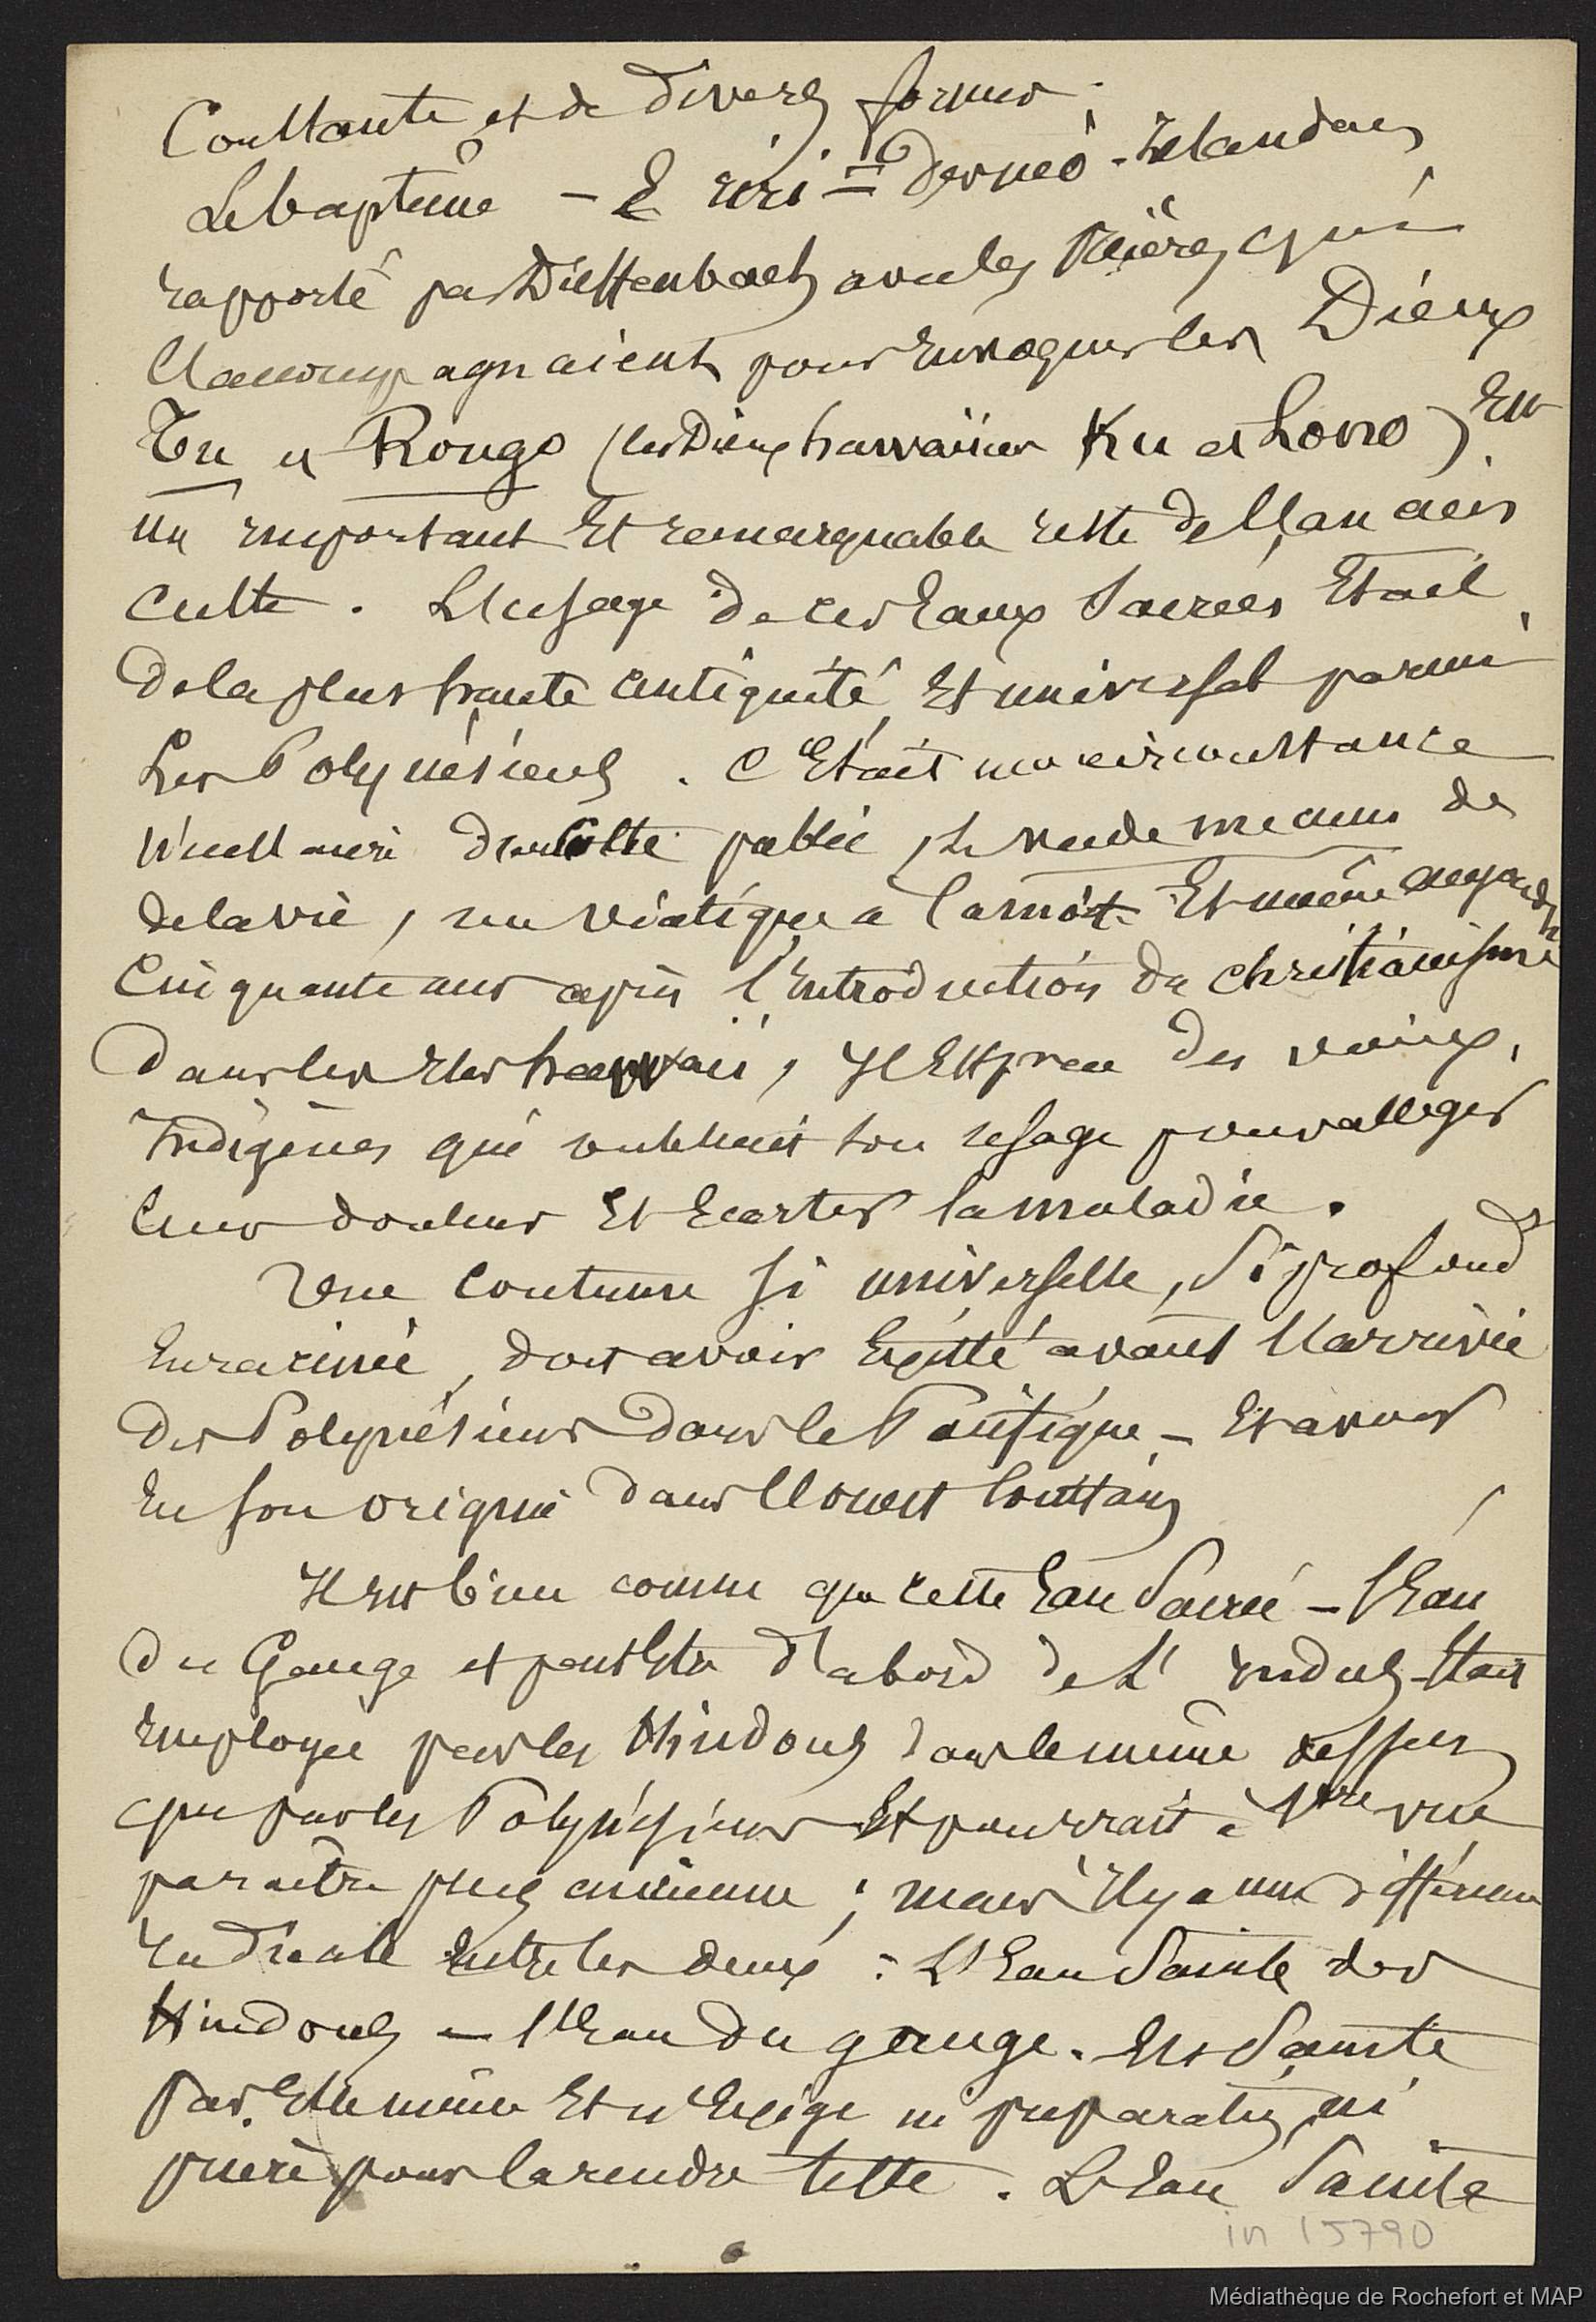 Constante et de divers formes.
Le baptême – E iri – des néo-Zelandais
rapporté par Dieffenbach avec les prières qui
l'accompagnaient pour invoquer les Dieux
Tu et Rongo (les Dieux hawaïiens Ku et Lono) est
un important et remarquable reste de l'ancien
culte. L'usage de ces Eaux Sacrées Etait
de la plus haute antiquité et universel parmi
Les Polynésiens. C'Etait une circonstance
nécessaire du Culte public, le vade mecum de
de la vie, un viatique a la mort. Et même aujourd'h
Cinquante ans après l'introduction du christianisme
dans les Iles hawaii, Il Est peu des vieux
indigènes qui oublient son usage pour alléger
leur douleur Et Ecarter la maladie.
Une coutume si universelle, Si profond
Enracinée, doit avoir Existé avant l'arrivée
des Polynésiens dans le Pacifique – Et avoir
Eu son origine dans l'Ouest lointain
Il est bien connu que cette Eau Sacrée – l'Eau
du Gange et peut Etre d'abord de L' indus – Etait
employée par les Hindous dans le même
que par les Polynésiens Et pourrait à 1ère vue
paraitre plus ancienne ; mais il y a une différence
radicale entre les deux : L'Eau Sainte des
Hindous – l'Eau du gange. Est Sainte
par Elle même Et n'Exige ni préparation ni
prière pour la rendre telle. L'Eau Sainte
in 15790
Médiathèque de Rochefort et MAP